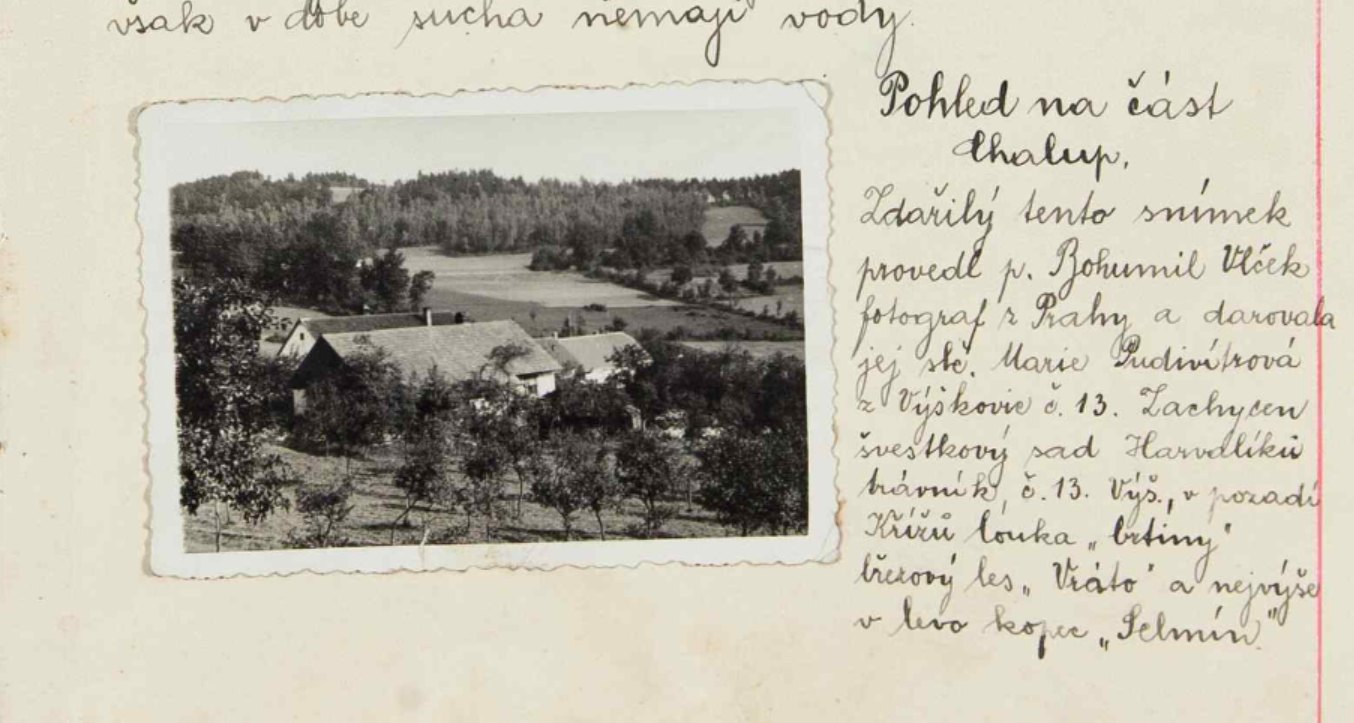 však v době sucha nemají vody.
Pohled na část
Chalup.
Zdařilý tento snímek
provedl p. Bohumil Vlček
fotograf z Prahy a darovala
jej slč. Marie Pudivítrová
z Výškovic č. 13. Zachycen
švestkový sad Harvalíků
trávník, č. 13. Výš., v pozadí
Křížů louka „brtiny"
březový les „Vráto" a nejvýše
v levo kopec „Selmín"